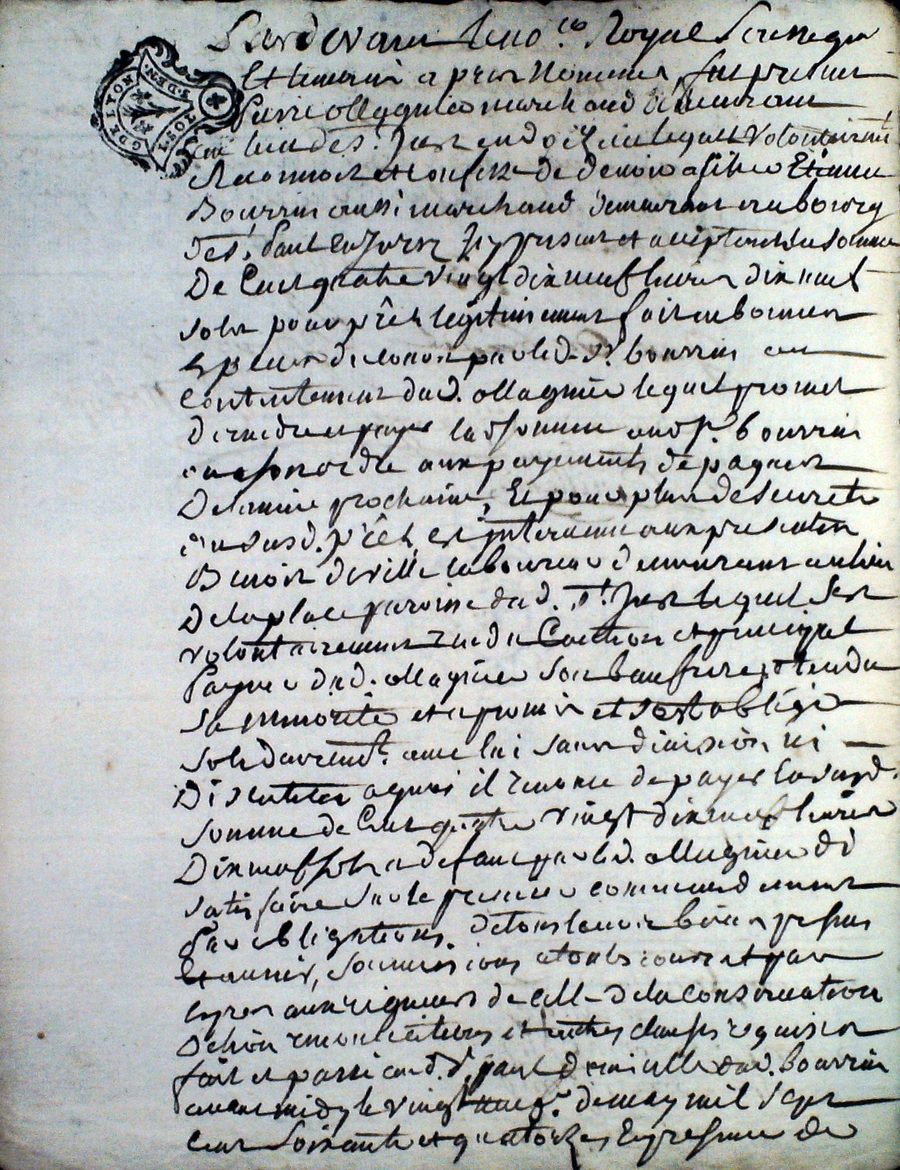 Pardevant le no.re Royal soussigné
Et temoins a pres Nommes, fut present
Pierre ollagnier marchand demeurant
au lieu de s.t Just en doizieu lequel volontairemt
Reconnoit et confesse de devoir a sieur Etienne
Bourrin aussi marchand demeurant au bourg
de s.t Paul en Jarez Icy present et acceptant la somme
De Cent quatre vingt dix neuf livres dix neuf
sols pour prêt legitimement fait en bonnes
Especes de cours par led. s.r bourrin au
Contentement dud. ollagnier lequel promet
De rendre et payer lad somme aud sr. bourrin
ou a son ordre aux payements de paques
De l'année prochaine, Et pour plus de seureté
du susd. prêt, est intervenu aux presentes
Benoit deville laboureur demeurant au lieu
De la place paroisse dud. st. Just lequel s'est
volontairement rendu Caution et principal
Payeur dud. ollagnier son beau frere, attendu
sa minorité et a promis et s'est obligé
solidairemt. avec lui sans division ni
Discution a quoi il renonce de payer la susd.
somme de Cent quatre vingt dix neuf livres
Dix neuf sols a defaut par led. ollagnier d'i
satisfaire sur le premier commandement
Par obligations de tous leurs biens presens
Et avenir, soumissions a toutes cours et par
Expres aux rigueurs de celle de la conservation
De lion renonciations et autres clauses requises
fait et passé aud. st. paul domicille dud. bourrin
avant midy le vingt neuf. de may mil sept
Cent soixante et quatorze, En presence de
GDE LYON
S.DEN.